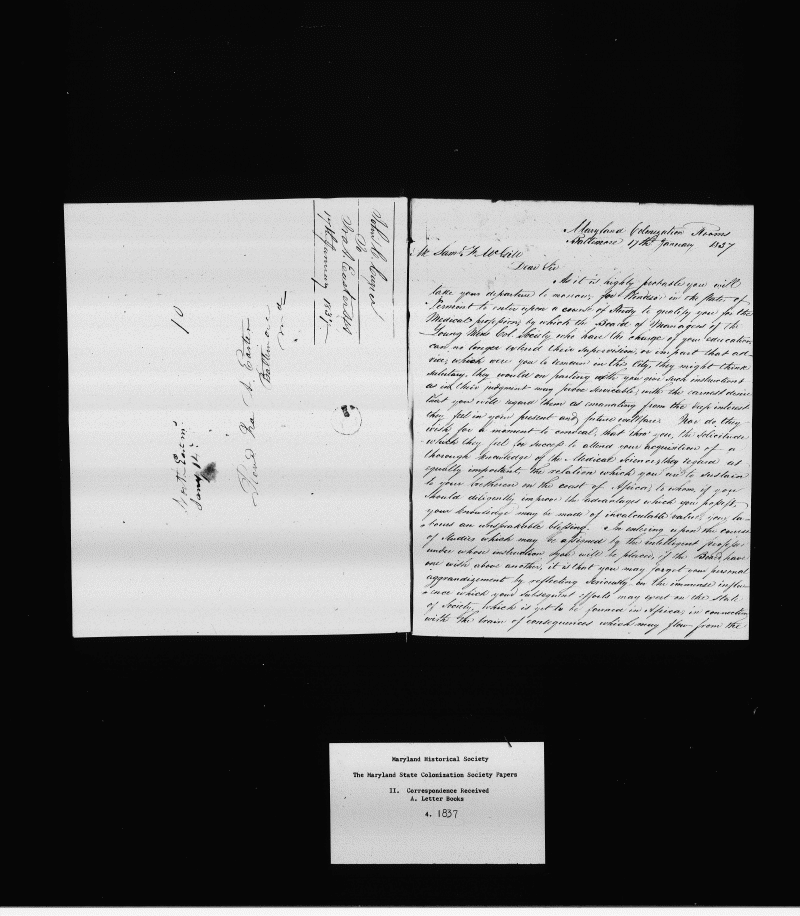 Maryland Colonization Rooms
Baltimore 17th January 1837
Mr. Saml. F. McGill
Dear Sir
As it is highly probable you will
take your departure to morrow, for Windsor in the State of
Vermont to enter upon a course of Study to qualify you for the
Medical profession, by which the Board of Managers of the
Young Mens Col. Society, who have the charge of your education
can no longer extend their supervision, or impart that ad-
vice, which were you to remain in this City, they might think
salutary, they would on parting with you give such instructions
as in their judgment may prove serviceable, with the earnest desire
that you will regard them as emanating from the deep interest
they feel in your present and future welfare. Nor do they
wish for a moment to conceal, that from you, the solicitude
which they feel for success to attend your acquisition of a
thorough knowledge of the Medical Science, they regard as
equally important, the relation which you are to sustain
to your brethren on the coast of Africa, to whom, if you
should diligently improve the advantages which you possess,
your knowledge may be made of incalculable value, your la-
bours an unspeakable blessing. In entering upon the course
of Studies which may be assigned by the intelligent
under whose instruction you will be placed, if the Board have
one wish above another, it is that you may forget your personal
aggrandizement by reflecting seriously on the immense influ-
ence which your subsequent efforts may exert on the State
of Society, which is yet to be formed in Africa, in connection
with the train of consequences which may flow from the
17th January 1837.
10
Baltimore
Md
Maryland Historical Society
The Maryland State Colonization Society Papers
II. Correspondence Received
A. Letter Books
4. 1837